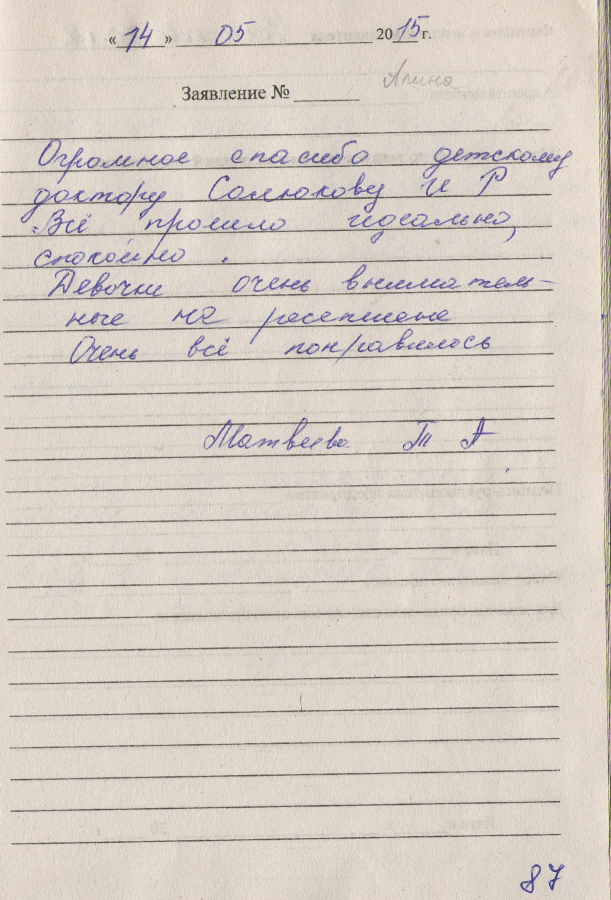 « 14 » 05 2015 г.
Заявление № ______ Алина
Огромное спасибо детскому
доктору Солюкову И Р
Всё прошло идеально,
спокойно.
Девочки очень вниматель-
ные на ресепшене
Очень всё понравилось
Матвеева Т А.
87